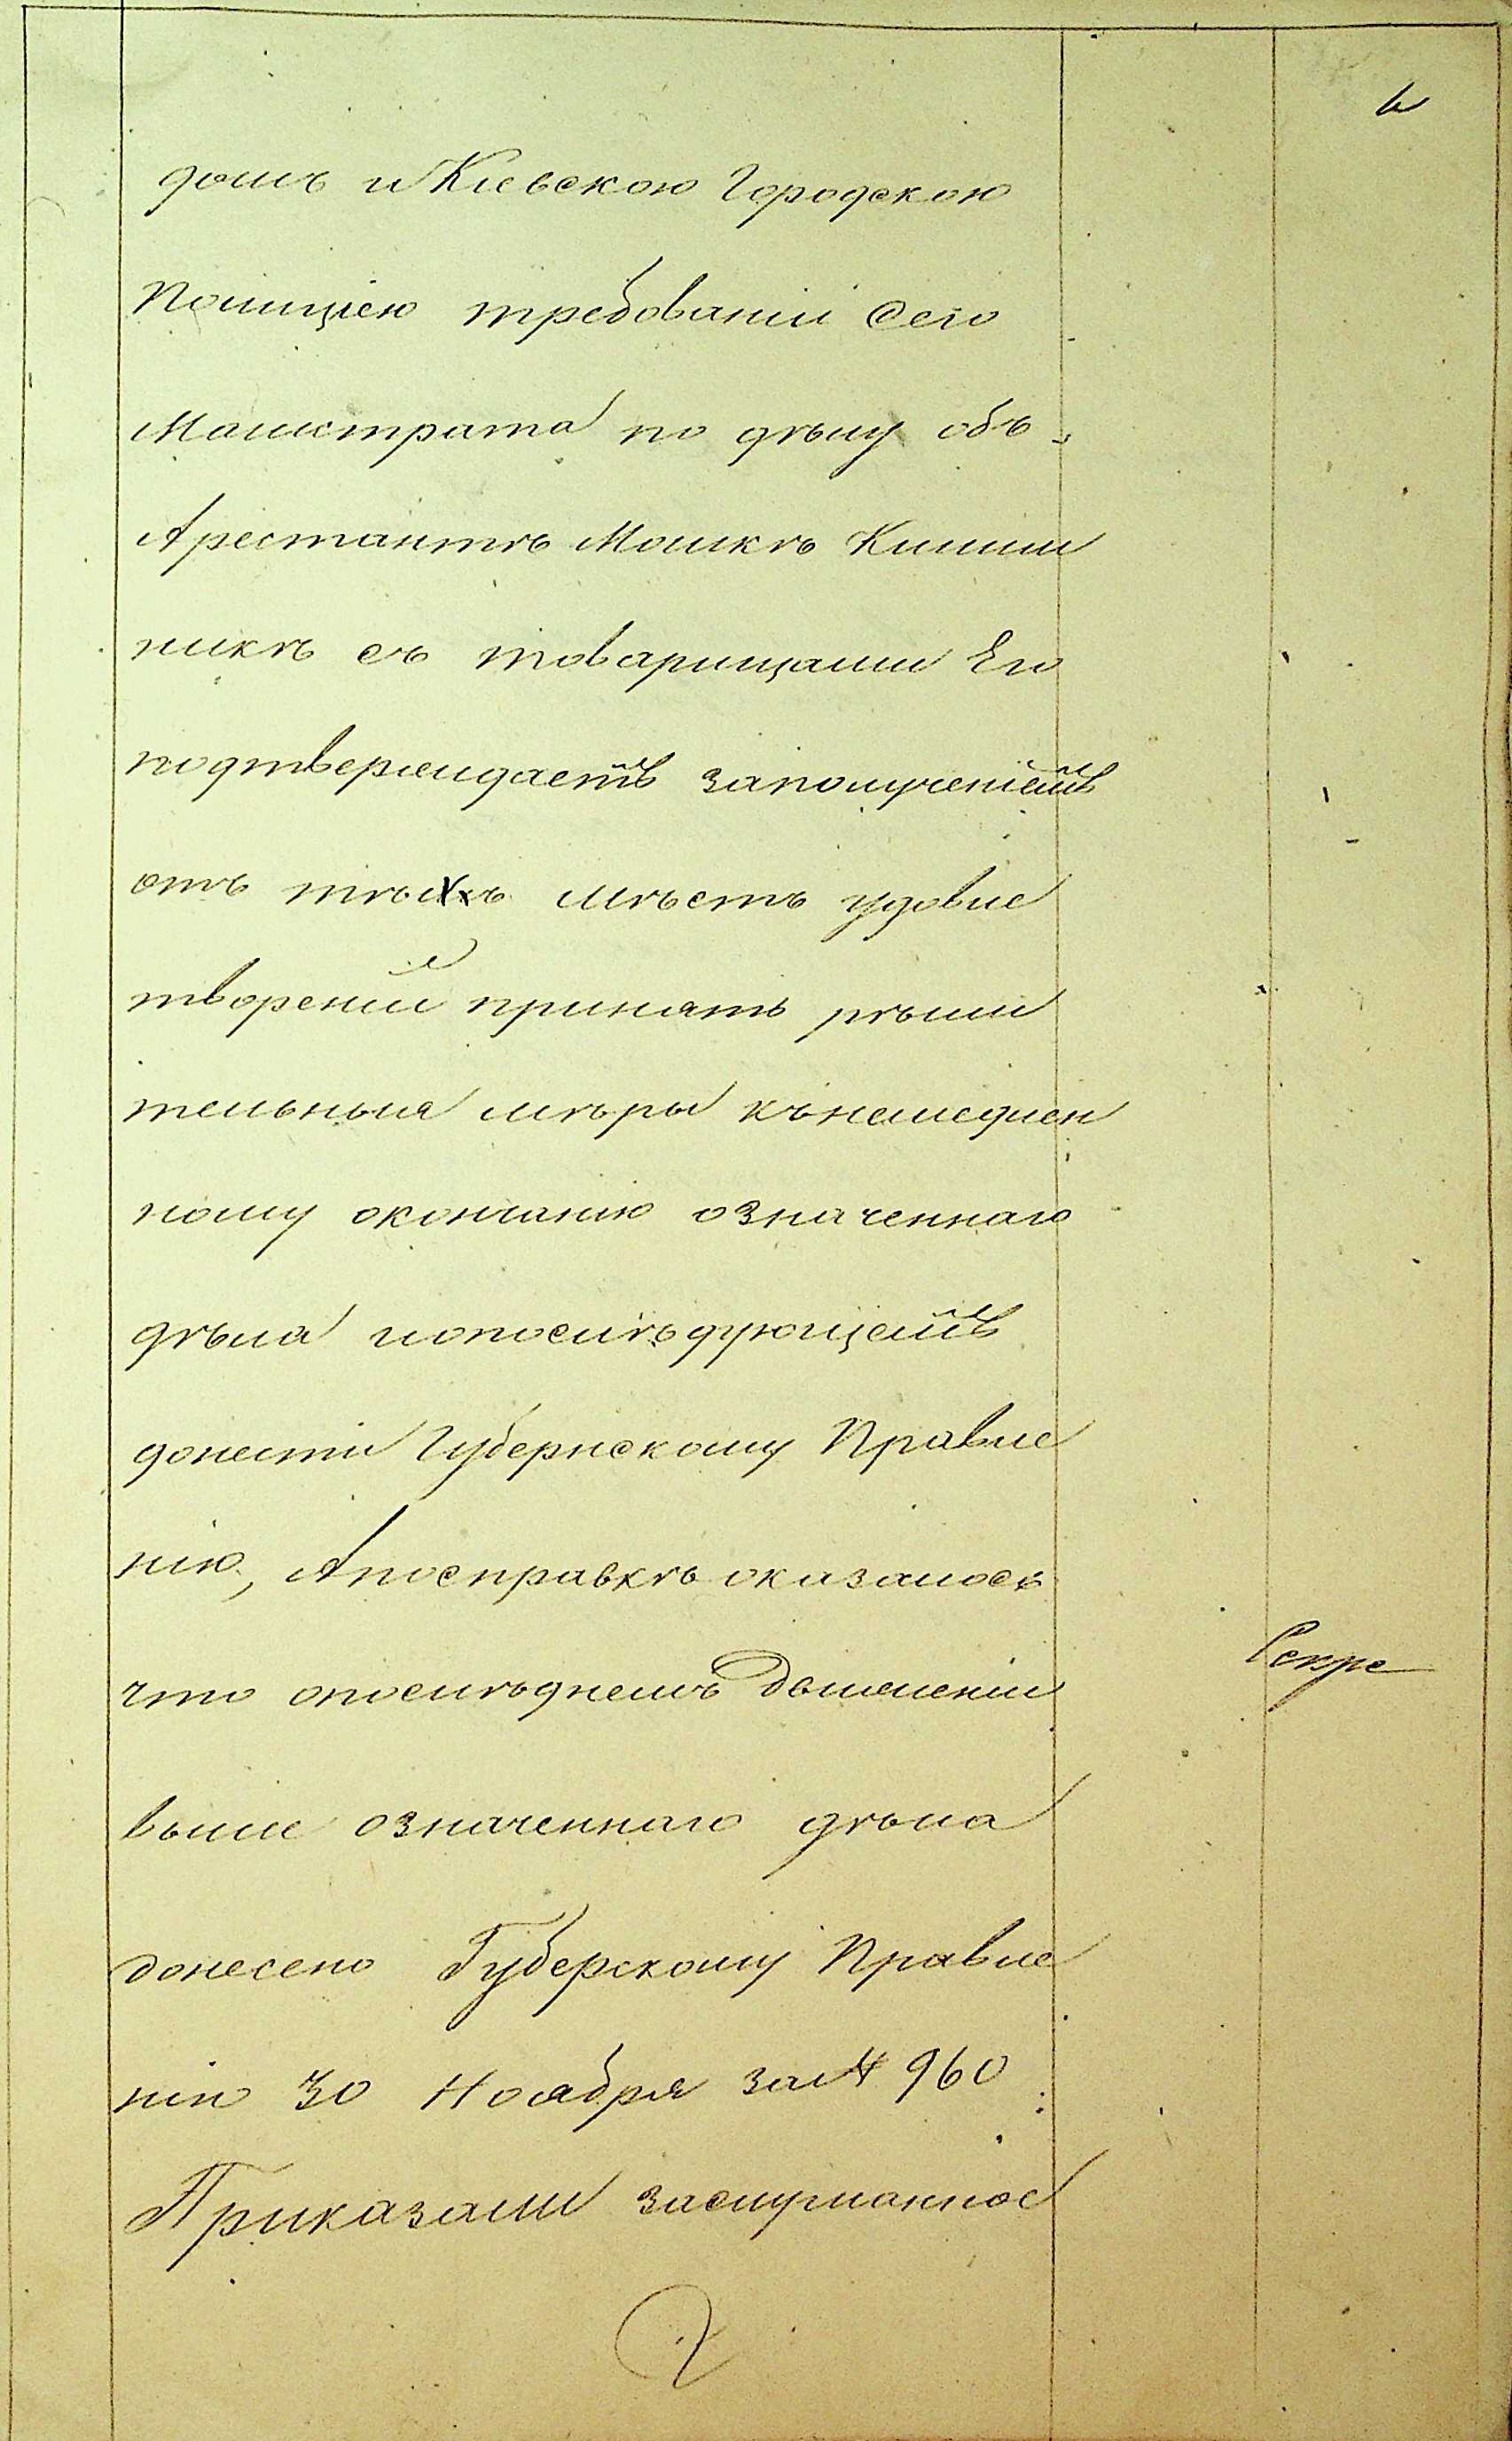 домъ и Кіевскою Городскою
Полиціею требованій Сего
Магистрата по дѣлу объ
Арестантѣ Мошкѣ Кишни
никѣ съ товарищами Его
подтверждаетъ заполученіемъ
отъ тѣхъ мѣстъ удовле
твореній принять рѣши
тельныя мѣры кънемедлен
ному окончанію означеннаго
дѣла ипопослѣдующемъ
донести Губернскому Правле
нію, Апосправкѣ оказалось
что опослѣднемъ движеніи
выше означеннаго дѣла
донесено Губерскому Правле
нію 30 Ноября за № 960
Секре
Приказали заслушанное